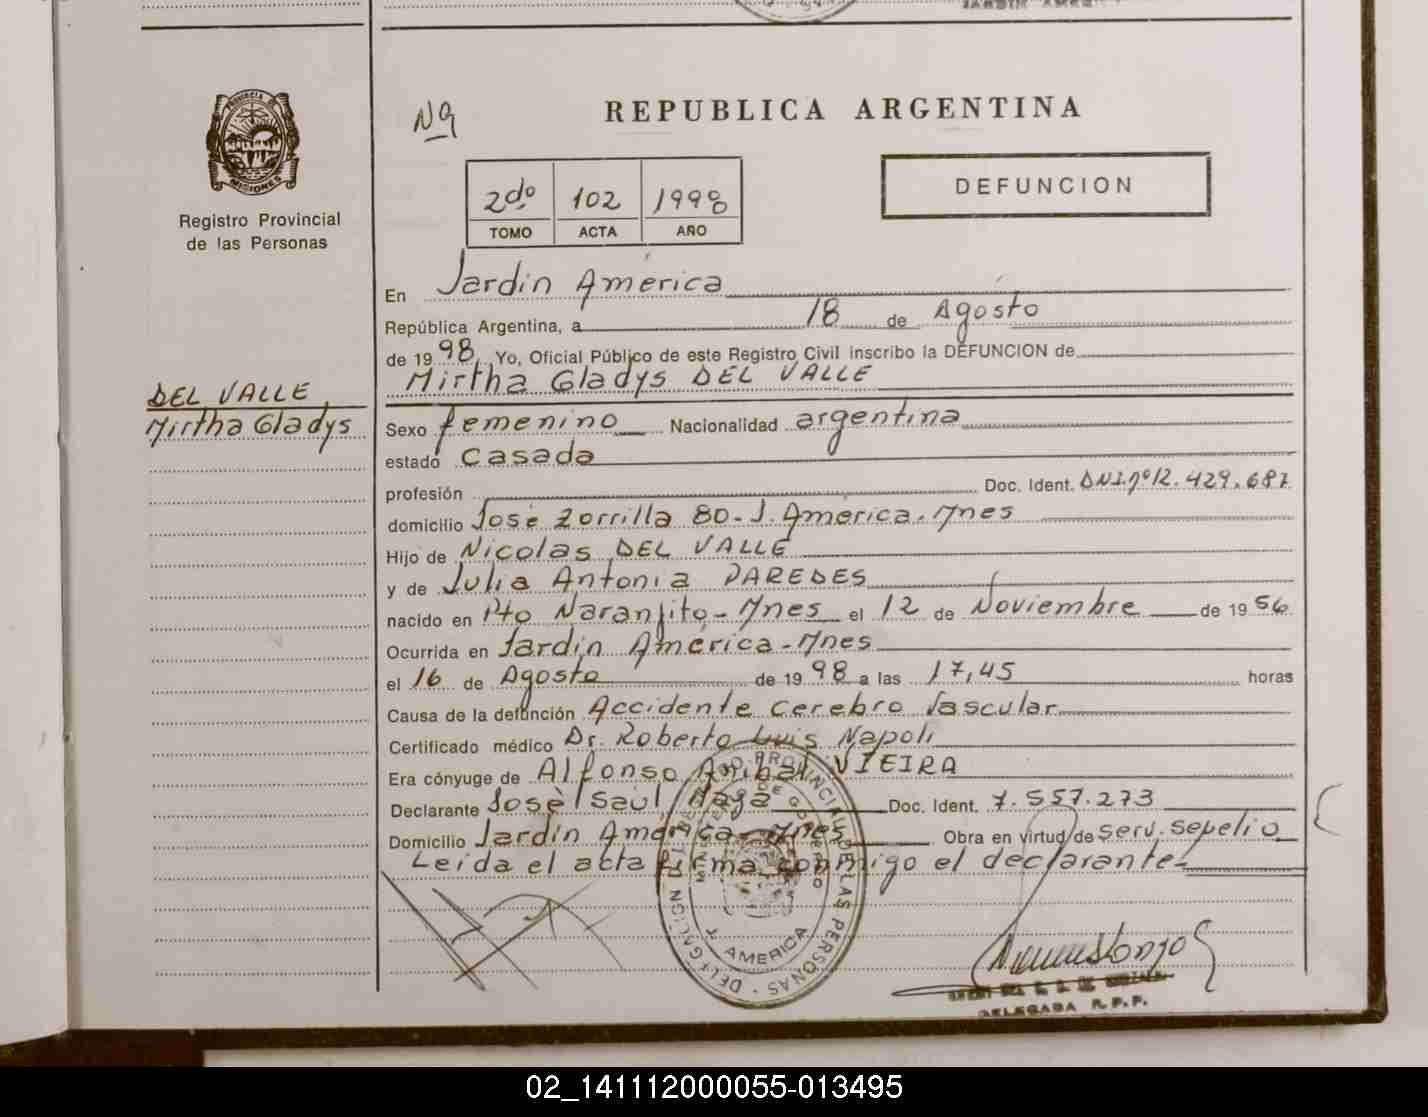 PROVINCIA DE
MISIONES
Registro Provincial
de las Personas
DEL VALLE
Mirtha Gladys
Nº
REPUBLICA ARGENTINA
2do 102 1998
TOMO ACTA AÑO
DEFUNCION
En Jardín América
República Argentina, a 18 de Agosto
de 1998 Yo, Oficial Público de este Registro Civil inscribo la DEFUNCION de
Mirtha Gladys DEL VALLE
Sexo femenino Nacionalidad argentina
estado casada
profesión Doc. Ident. DNI.nº12.429.687
domicilio José Zorrilla 80-J. América. Mnes
Hijo de Nicolas DEL VALLE
y de Julia Antonia PAREDES
nacido en Pto Naranjito-Mnes el 12 de Noviembre de 1956
Ocurrida en Jardín América-Mnes
el 16 de Agosto de 1998 a las 17,45 horas
Causa de la defunción Accidente cerebro Vascular
Certificado médico Dr. Roberto Luis Napoli
Era cónyuge de Alfonso Anibal VIEIRA
Declarante José Saúl Doc. Ident. 7.557.273
Domicilio Jardín América-Mnes Obra en virtud de serv. sepelio
Leída el acta firma conmigo el declarante
DELEGACION DEL REGISTRO PROVINCIAL DE LAS PERSONAS
MINISTERIO DE GOBIERNO
J. AMERICA
DELEGADA R.P.P.
02_141112000055-013495